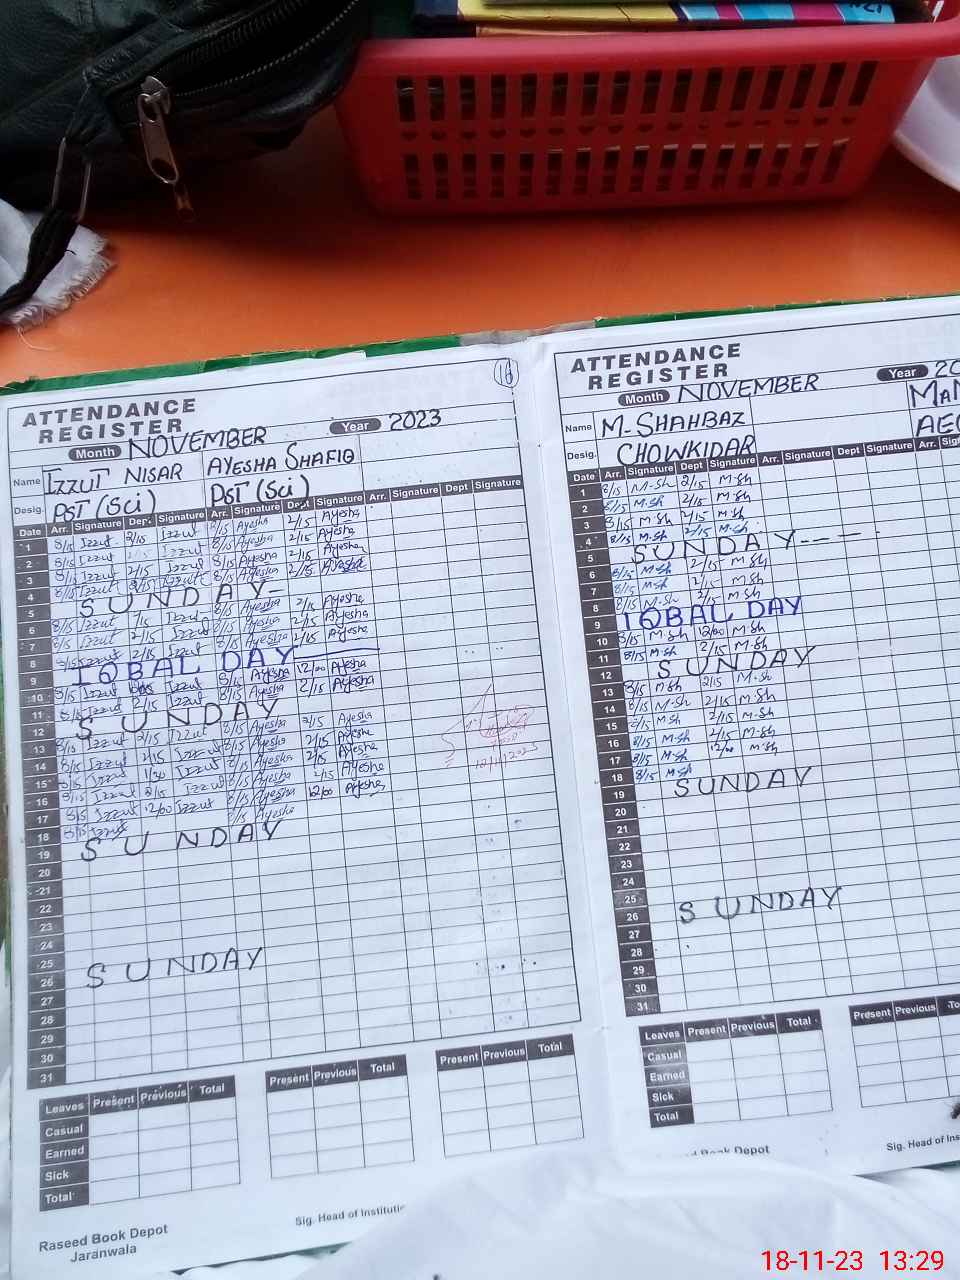 16
ATTENDANCE
REGISTER
Month NOVEMBER Year 2023
Name IZZUT NISAR AYESHA SHAFIQ
Desig. PST (Sci) PST (Sci)
Date Arr. Signature Dep. Signature Arr. Signature Dept Signature Arr. Signature Dept Signature
1 8/15 Izzut 2/15 Izzut 8/15 Ayesha 2/15 Ayesha
2 8/15 Izzut 2/15 Izzut 8/15 Ayesha 2/15 Ayesha
3 8/15 Izzut 2/15 Izzut 8/15 Ayesha 2/15 Ayesha
4 8/15 Izzut 2/15 Izzut 8/15 Ayesha 2/15 Ayesha
5 SUNDAY
6 8/15 Izzut Izzut 8/15 Ayesha 2/15 Ayesha
7 8/15 Izzut 2/15 Izzut 8/15 Ayesha 2/15 Ayesha
8 8/15 Izzut 2/15 Izzut 8/15 Ayesha 2/15 Ayesha
9 IQBAL DAY
10 8/15 Izzut Izzut 8/15 Ayesha 12/00 Ayesha
11 8/15 Izzut 2/15 Izzut 8/15 Ayesha 2/15 Ayesha
12 SUNDAY
13 8/15 Izzut 2/15 Izzut 8/15 Ayesha 2/15 Ayesha
14 8/15 Izzut 2/15 Izzut 8/15 Ayesha 2/15 Ayesha
15 8/15 Izzut 1/30 Izzut 8/15 Ayesha 2/15 Ayesha
16 8/15 Izzut 2/15 Izzut 8/15 Ayesha 2/15 Ayesha
17 8/15 Izzut 12/00 Izzut 8/15 Ayesha 12/00 Ayesha
18 8/15 Izzut 8/15 Ayesha
19 SUNDAY
20
21
22
23
24
25
26 SUNDAY
27
28
29
30
31
Leaves Present Previous Total Present Previous Total Present Previous Total
Casual
Earned
Sick
Total
Raseed Book Depot
Jaranwala
Sig. Head of
ATTENDANCE
REGISTER
Month NOVEMBER Year 20
Name M-SHAHBAZ
Desig. CHOWKIDAR
Date Arr. Signature Dept Signature Arr. Signature Dept Signature Arr. Signature
1 8/15 M-Sh 2/15 M-Sh
2 8/15 M-Sh 2/15 M-Sh
3 8/15 M-Sh 2/15 M-Sh
4 8/15 M-Sh 2/15 M-Sh
5 SUNDAY----
6 8/15 M-Sh 2/15 M-Sh
7 8/15 M-Sh 2/15 M-Sh
8 8/15 M-Sh 2/15 M-Sh
9 IQBAL DAY
10 8/15 M-Sh 12/00 M-Sh
11 8/15 M-Sh 2/15 M-Sh
12 SUNDAY
13 8/15 M-Sh 2/15 M-Sh
14 8/15 M-Sh 2/15 M-Sh
15 8/15 M-Sh 2/15 M-Sh
16 8/15 M-Sh 2/15 M-Sh
17 8/15 M-Sh 12/00 M-Sh
18 8/15 M-Sh
19 SUNDAY
20
21
22
23
24
25
26 SUNDAY
27
28
29
30
31
Leaves Present Previous Total Present Previous
Casual
Earned
Sick
Total
Book Depot
Sig. Head of
18-11-23 13:29